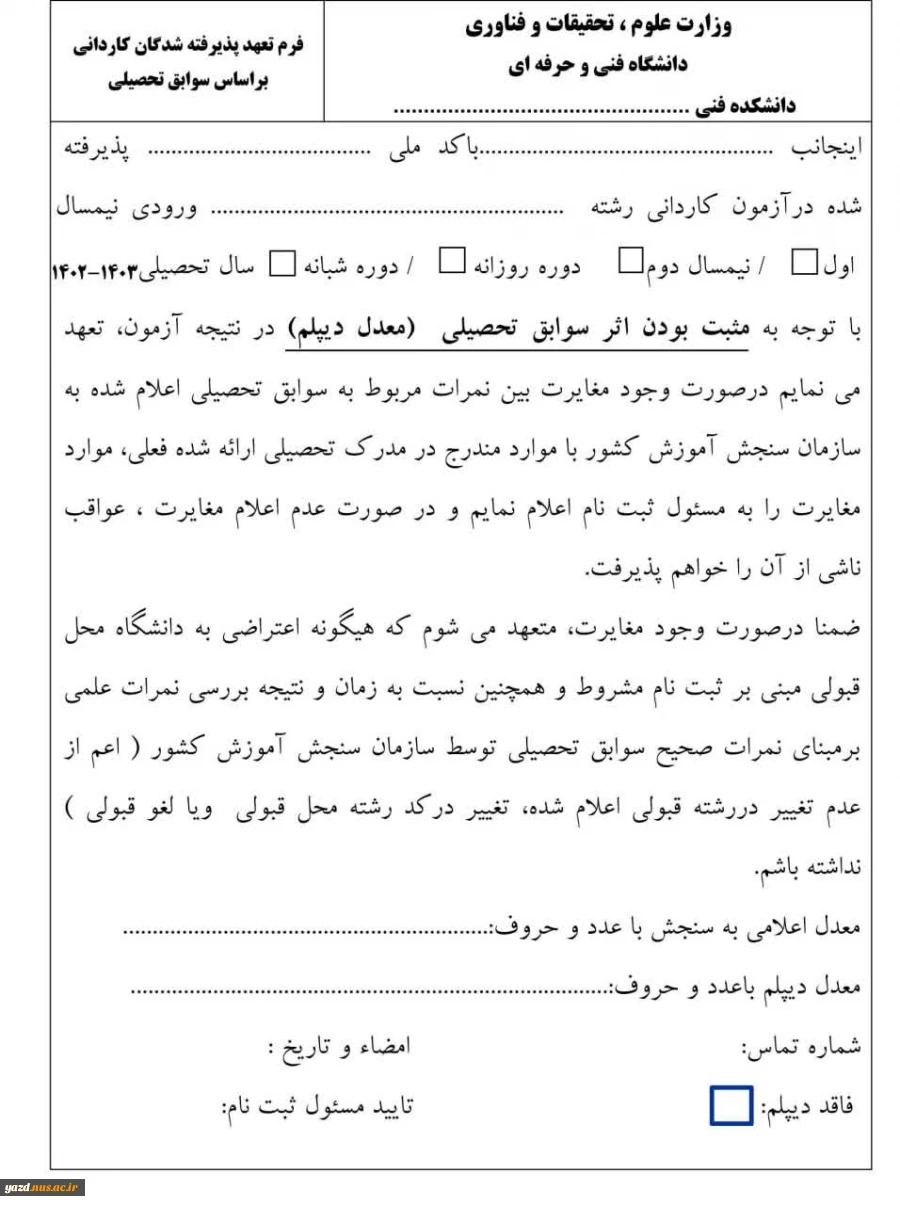 وزارت علوم ، تحقیقات و فناوری
دانشگاه فنی و حرفه ای
دانشکده فنی ................................................
فرم تعهد پذیرفته شدگان کاردانی
براساس سوابق تحصیلی
اینجانب ..................................................باکد ملی ...................................... پذیرفته
شده درآزمون کاردانی رشته ............................................................ ورودی نیمسال
اول □ / نیمسال دوم□ دوره روزانه □ / دوره شبانه □ سال تحصیلی۱۴۰۳-۱۴۰۲
با توجه به مثبت بودن اثر سوابق تحصیلی (معدل دیپلم) در نتیجه آزمون، تعهد
می نمایم درصورت وجود مغایرت بین نمرات مربوط به سوابق تحصیلی اعلام شده به
سازمان سنجش آموزش کشور با موارد مندرج در مدرک تحصیلی ارائه شده فعلی، موارد
مغایرت را به مسئول ثبت نام اعلام نمایم و در صورت عدم اعلام مغایرت ، عواقب
ناشی از آن را خواهم پذیرفت.
ضمنا درصورت وجود مغایرت، متعهد می شوم که هیگونه اعتراضی به دانشگاه محل
قبولی مبنی بر ثبت نام مشروط و همچنین نسبت به زمان و نتیجه بررسی نمرات علمی
برمبنای نمرات صحیح سوابق تحصیلی توسط سازمان سنجش آموزش کشور ( اعم از
عدم تغییر دررشته قبولی اعلام شده، تغییر درکد رشته محل قبولی ویا لغو قبولی )
نداشته باشم.
معدل اعلامی به سنجش با عدد و حروف:..............................................................
معدل دیپلم باعدد و حروف:.................................................................................
شماره تماس: امضاء و تاریخ :
فاقد دیپلم: □ تایید مسئول ثبت نام:
yazd.nus.ac.ir